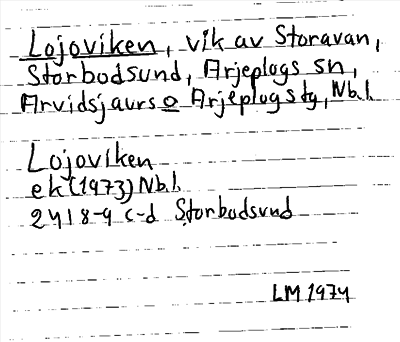 Lojoviken, vik av Storavan,
Storbodsund, Arjeplogs sn,
Arvidsjaurs o Arjeplogs tg, Nb.l.
Lojoviken
ek (1973) Nb.l.
24I8-9 c-d Storbodsund
LM 1974